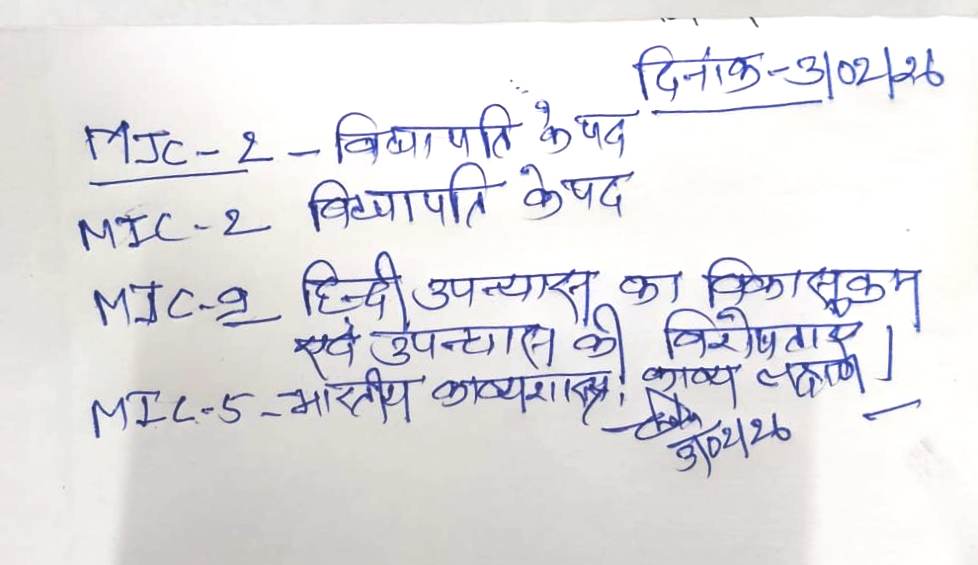 दिनांक-3/02/26
MJC-2-विद्यापति के पद
MIC-2 विद्यापति के पद
MJC-9 हिन्दी उपन्यास का विकासक्रम
एवं उपन्यास की विशेषताएं
MIC-5-भारतीय काव्यशास्त्र: काव्य लक्षण।
3/02/26